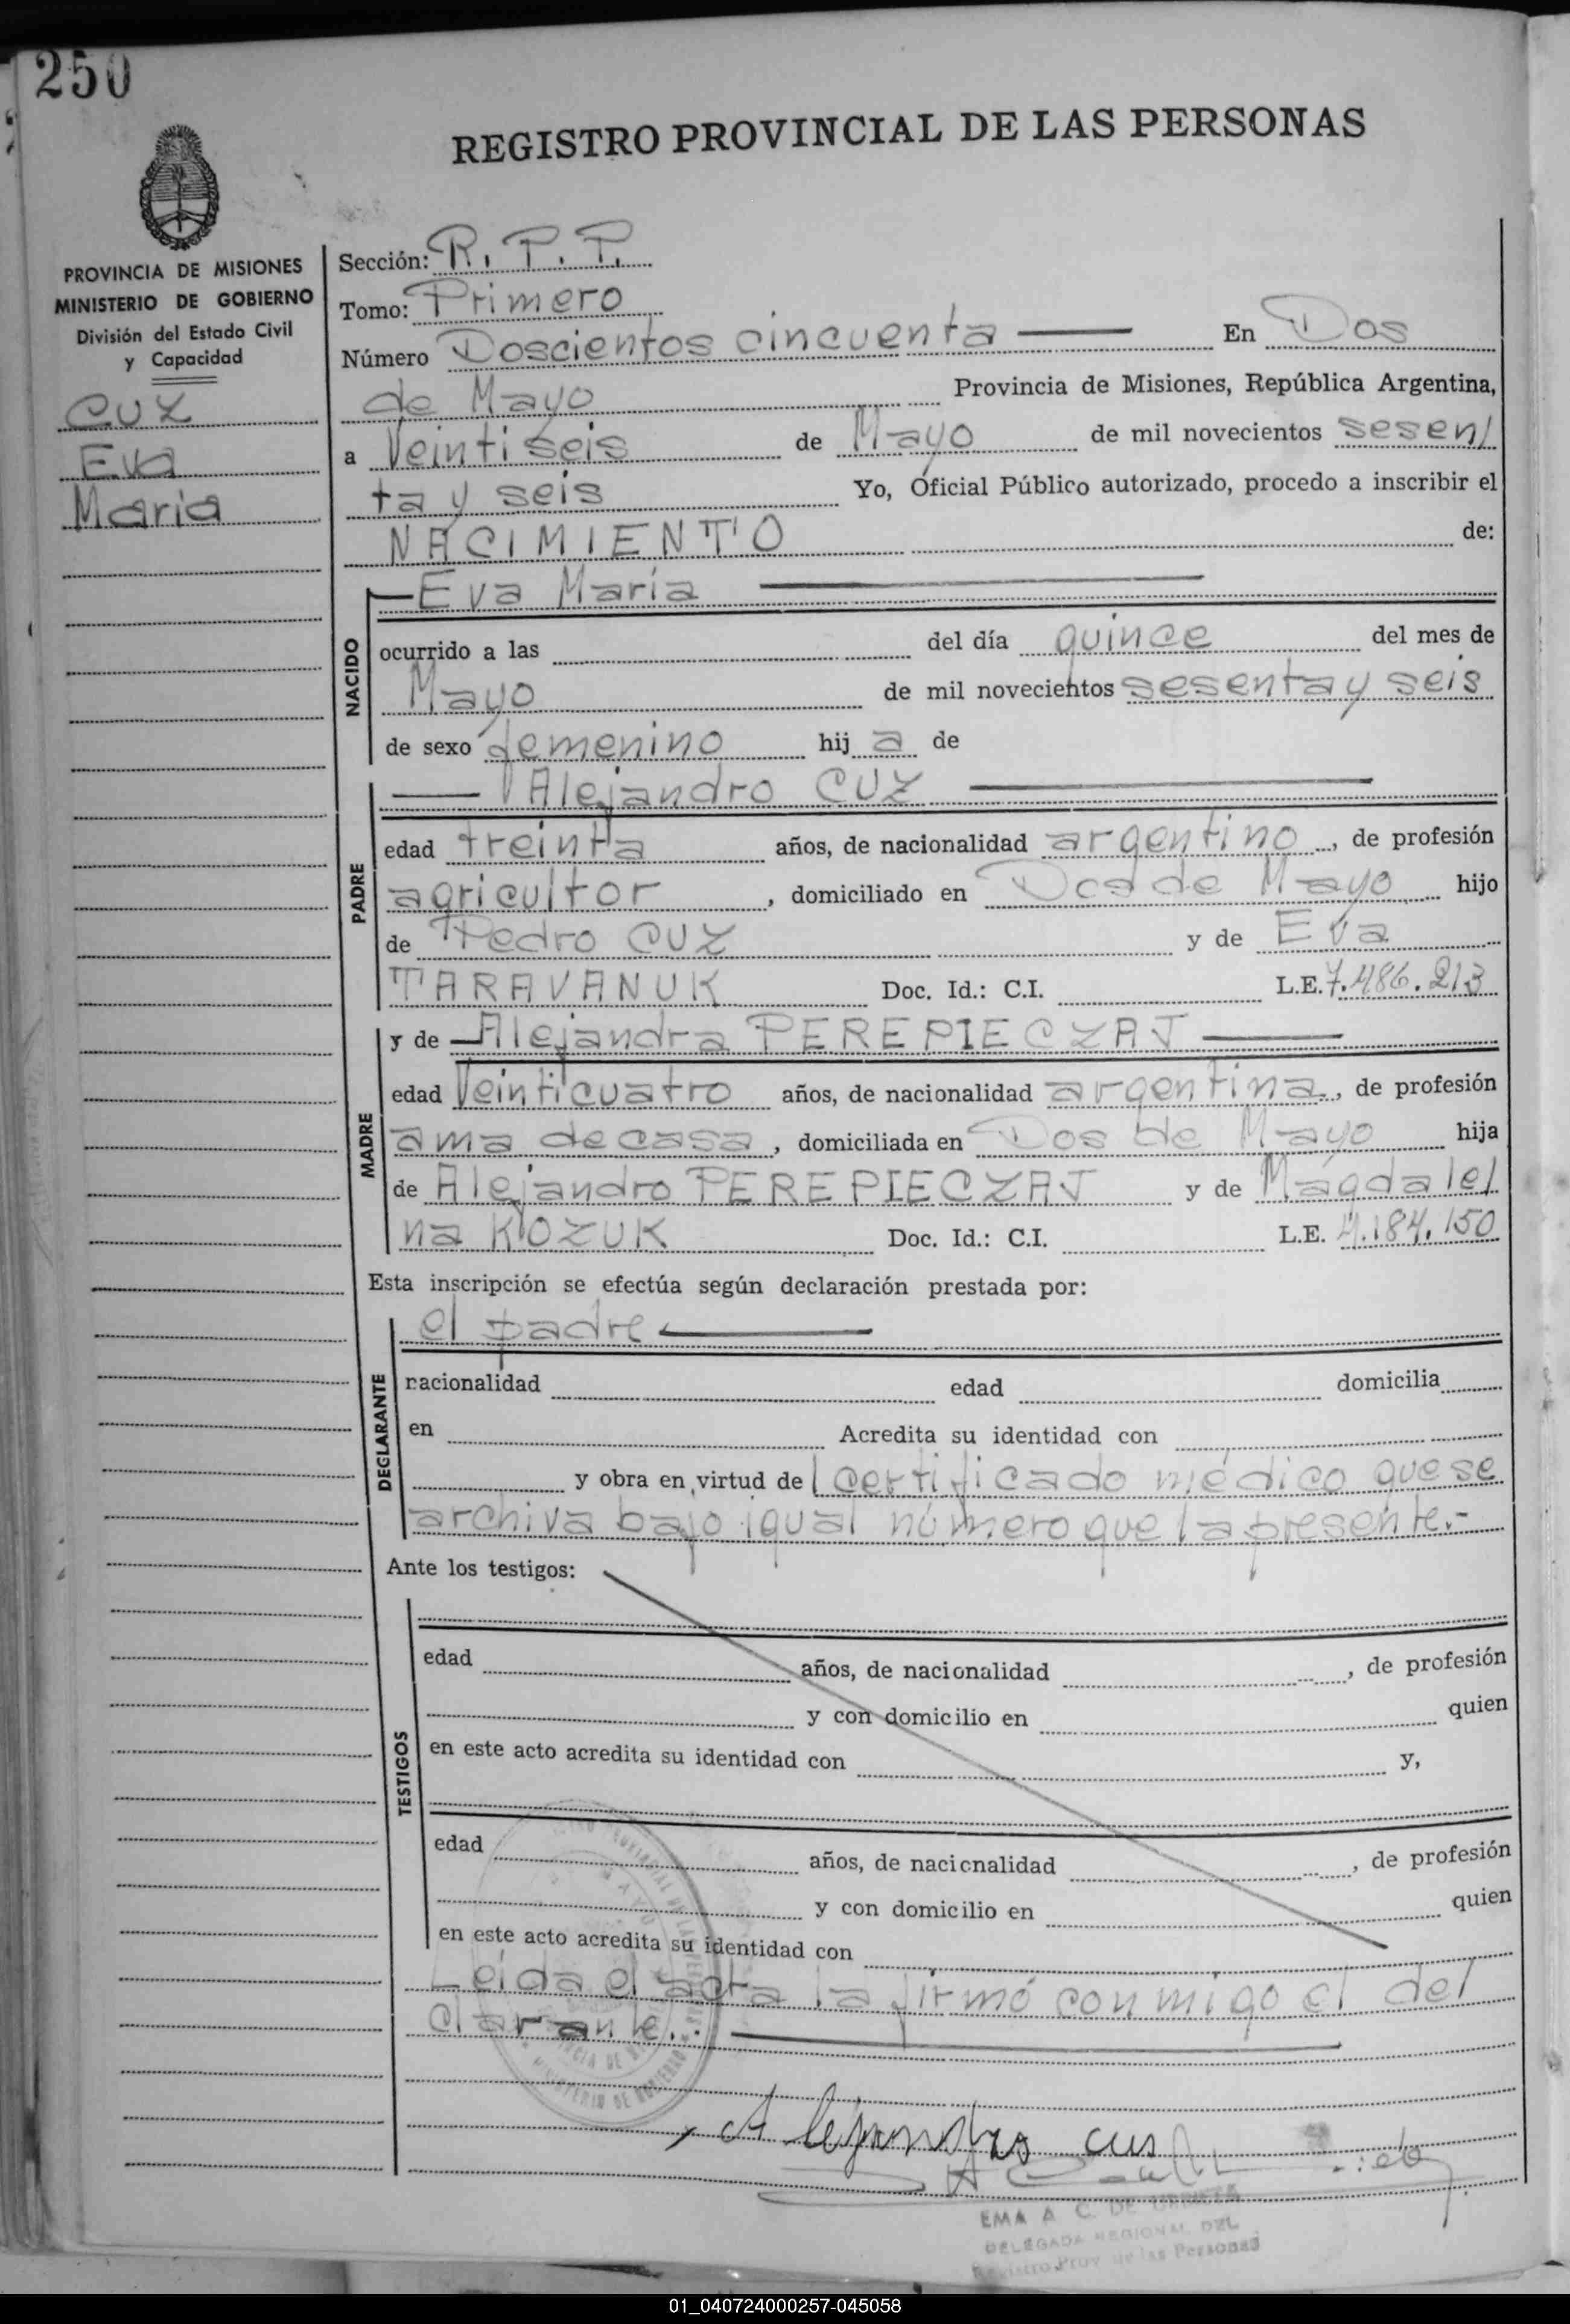 250
REGISTRO PROVINCIAL DE LAS PERSONAS
PROVINCIA DE MISIONES
MINISTERIO DE GOBIERNO
División del Estado Civil
y Capacidad
CUZ
Eva
Maria
Sección: R. P. P.
Tomo: Primero
Número Doscientos cincuenta En Dos
de Mayo Provincia de Misiones, República Argentina,
a Veintiseis de Mayo de mil novecientos sesen/
ta y seis Yo, Oficial Público autorizado, procedo a inscribir el
NACIMIENTO de:
Eva María
NACIDO
ocurrido a las del día quince del mes de
Mayo de mil novecientos sesenta y seis
de sexo femenino hij a de
Alejandro CUZ
PADRE
edad treinta años, de nacionalidad argentino, de profesión
agricultor, domiciliado en Dos de Mayo hijo
de Pedro CUZ y de Eva
TARAVANUK Doc. Id.: C.I. L.E. 7.486.213
y de Alejandra PEREPIECZAJ
MADRE
edad Veinticuatro años, de nacionalidad argentina, de profesión
ama de casa, domiciliada en Dos de Mayo hija
de Alejandro PEREPIECZAJ y de Magdale/
na KOZUK Doc. Id.: C.I. L.E. 4.184.150
Esta inscripción se efectúa según declaración prestada por:
el padre
DECLARANTE
nacionalidad edad domicilia
en Acredita su identidad con
y obra en virtud de certificado médico que se
archiva bajo igual número que la presente.-
Ante los testigos:
TESTIGOS
edad años, de nacionalidad , de profesión
y con domicilio en quien
en este acto acredita su identidad con y,
edad años, de nacionalidad , de profesión
y con domicilio en quien
en este acto acredita su identidad con
Leída el acta la firmó conmigo el de/
clarante.
Alejandro cus
EMA A C. DE
DELEGADA REGIONAL DEL
Registro Prov de las Personas
01_040724000257-045058